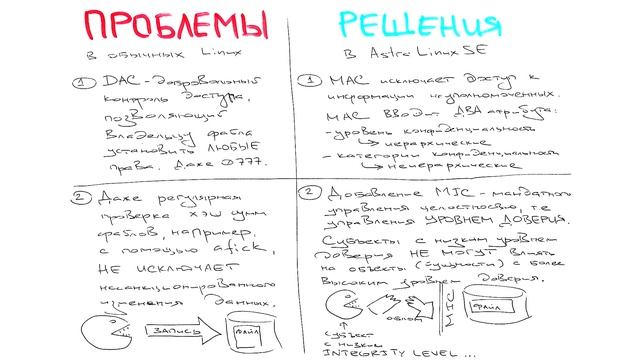 ПРОБЛЕМЫ
в обычных Linux
1 DAC - добровольный
контроль доступа,
позволяющий
владельцу файла
установить ЛЮБЫЕ
права. Даже 0777.
2 Даже регулярная
проверка хэш сумм
файлов, например,
с помощью afick,
НЕ ИСКЛЮЧАЕТ
несанкционированного
изменения данных.
ЗАПИСЬ
ФАЙЛ
РЕШЕНИЯ
в Astra Linux SE
1 MAC исключает доступ к
информации неуполномоченных.
MAC вводит ДВА атрибута:
- уровень конфиденциальность
иерархические
- категории конфиденциальности
неиерархические
2 Добавление MIC - мандатного
управления целостностью, т.е
управления УРОВНЕМ ДОВЕРИЯ.
Субъекты с низким уровнем
доверия НЕ МОГУТ влиять
на объекты (сущности) с более
высоким уровнем доверия.
ОБЛОМ
MIC
ФАЙЛ
СУБЪЕКТ
с низким
INTEGRITY LEVEL...